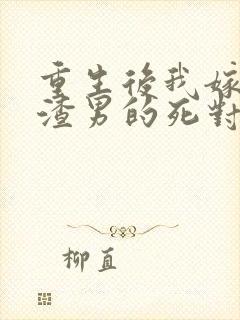 重生後我嫁
渣男的死對
柳直